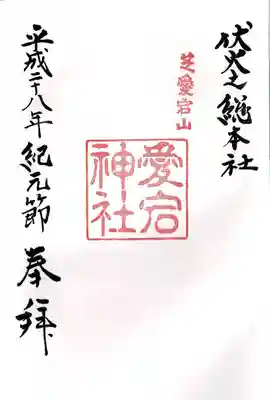 伏火之総本社
芝愛宕山
愛宕
神社
平成二十八年紀元節
奉拝